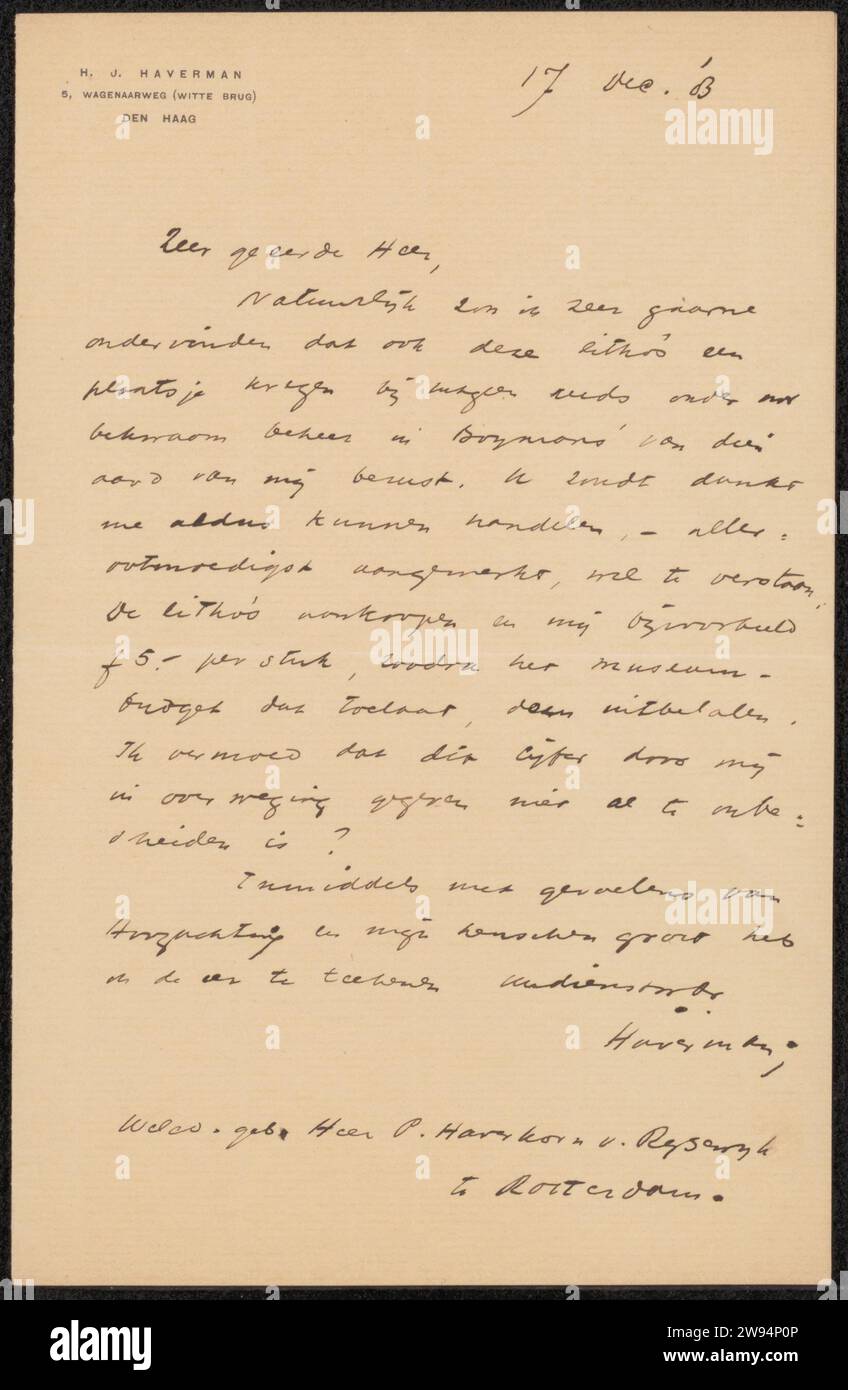 H. J. HAVERMAN
5, WAGENAARWEG (WITTE BRUG)
DEN HAAG
17 Dec.
Zeer geeerde Heer,
Natuurlijk zou ik zeer gaarne
ondervinden dat ook deze litho's een
plaatsje kregen bij hetgeen reeds onder uw
bekwaam beheer in Boymans' van dien
aard van mij berust. U zoudt dunkt
me aldus kunnen handelen, - aller=
ootmoedigst aangemerkt, wel te verstaan,
De litho's aankoopen en mij bijvoorbeeld
f 5.- per stuk, zoodra het museum-
budget dat toelaat, doen uitbetalen.
Ik vermoed dat dit cijfer door mij
in overweging gegeven niet al te onbe=
scheiden is?
Inmiddels met gevoelens van
Hoogachting en mijn heuschen groet heb
ik de eer te teekenen Uw dienstw. Dr
Haverman;
Heer P. Haverkorn v. Rijsewijk
te Rotterdam.
alamy
Image ID: 2W94P0P
www.alamy.com